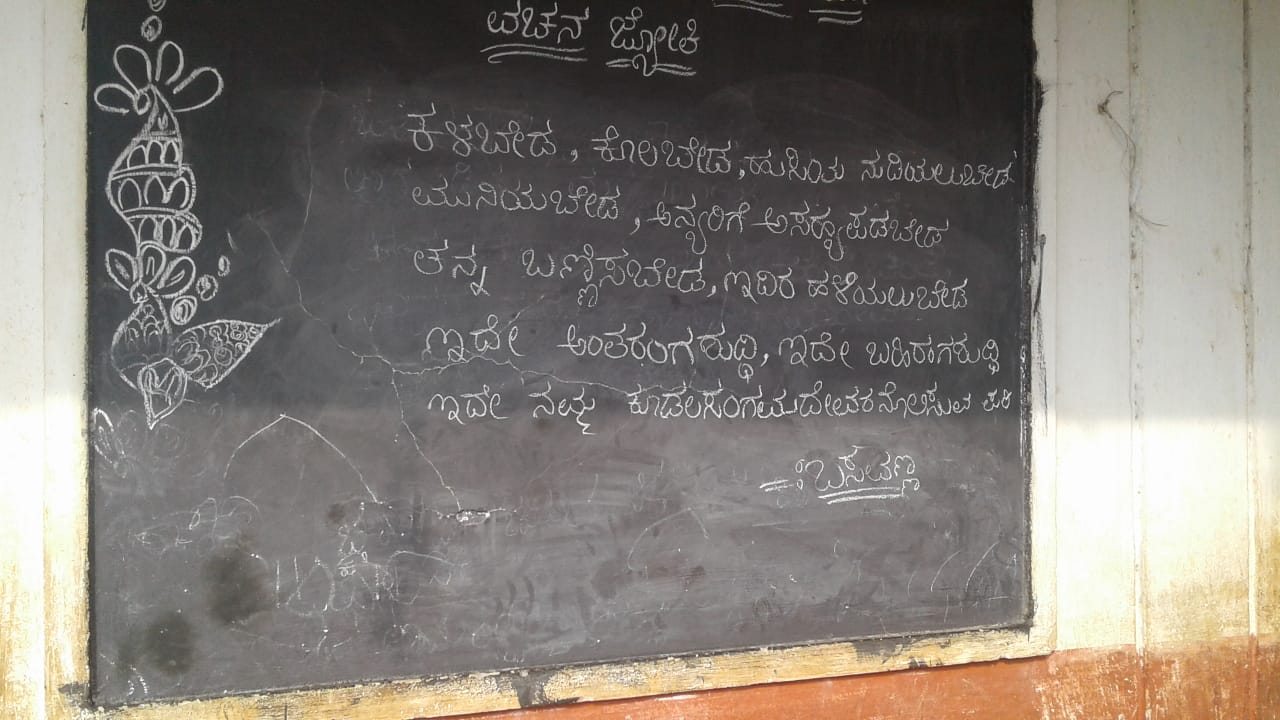 ವಚನ ಜ್ಯೋತಿ
ಕಳಬೇಡ, ಕೊಲಬೇಡ, ಹುಸಿಂತು ನುಡಿಯಲುಬೇಡ
ಮುನಿಯಬೇಡ, ಅನ್ಯರಿಗೆ ಅಸಹ್ಯಪಡಬೇಡ
ತನ್ನ ಬಣ್ಣಿಸಬೇಡ, ಇದಿರ ಹಳಿಯಲುಬೇಡ
ಇದೇ ಅಂತರಂಗಶುದ್ಧಿ, ಇದೇ ಬಹಿರಾಗಶುದ್ಧಿ
ಇದೇ ನಮ್ಮ ಕೂಡಲಸಂಗಮದೇವರನೊಲಿಸುವ ಪರಿ
-: ಬಸವಣ್ಣ